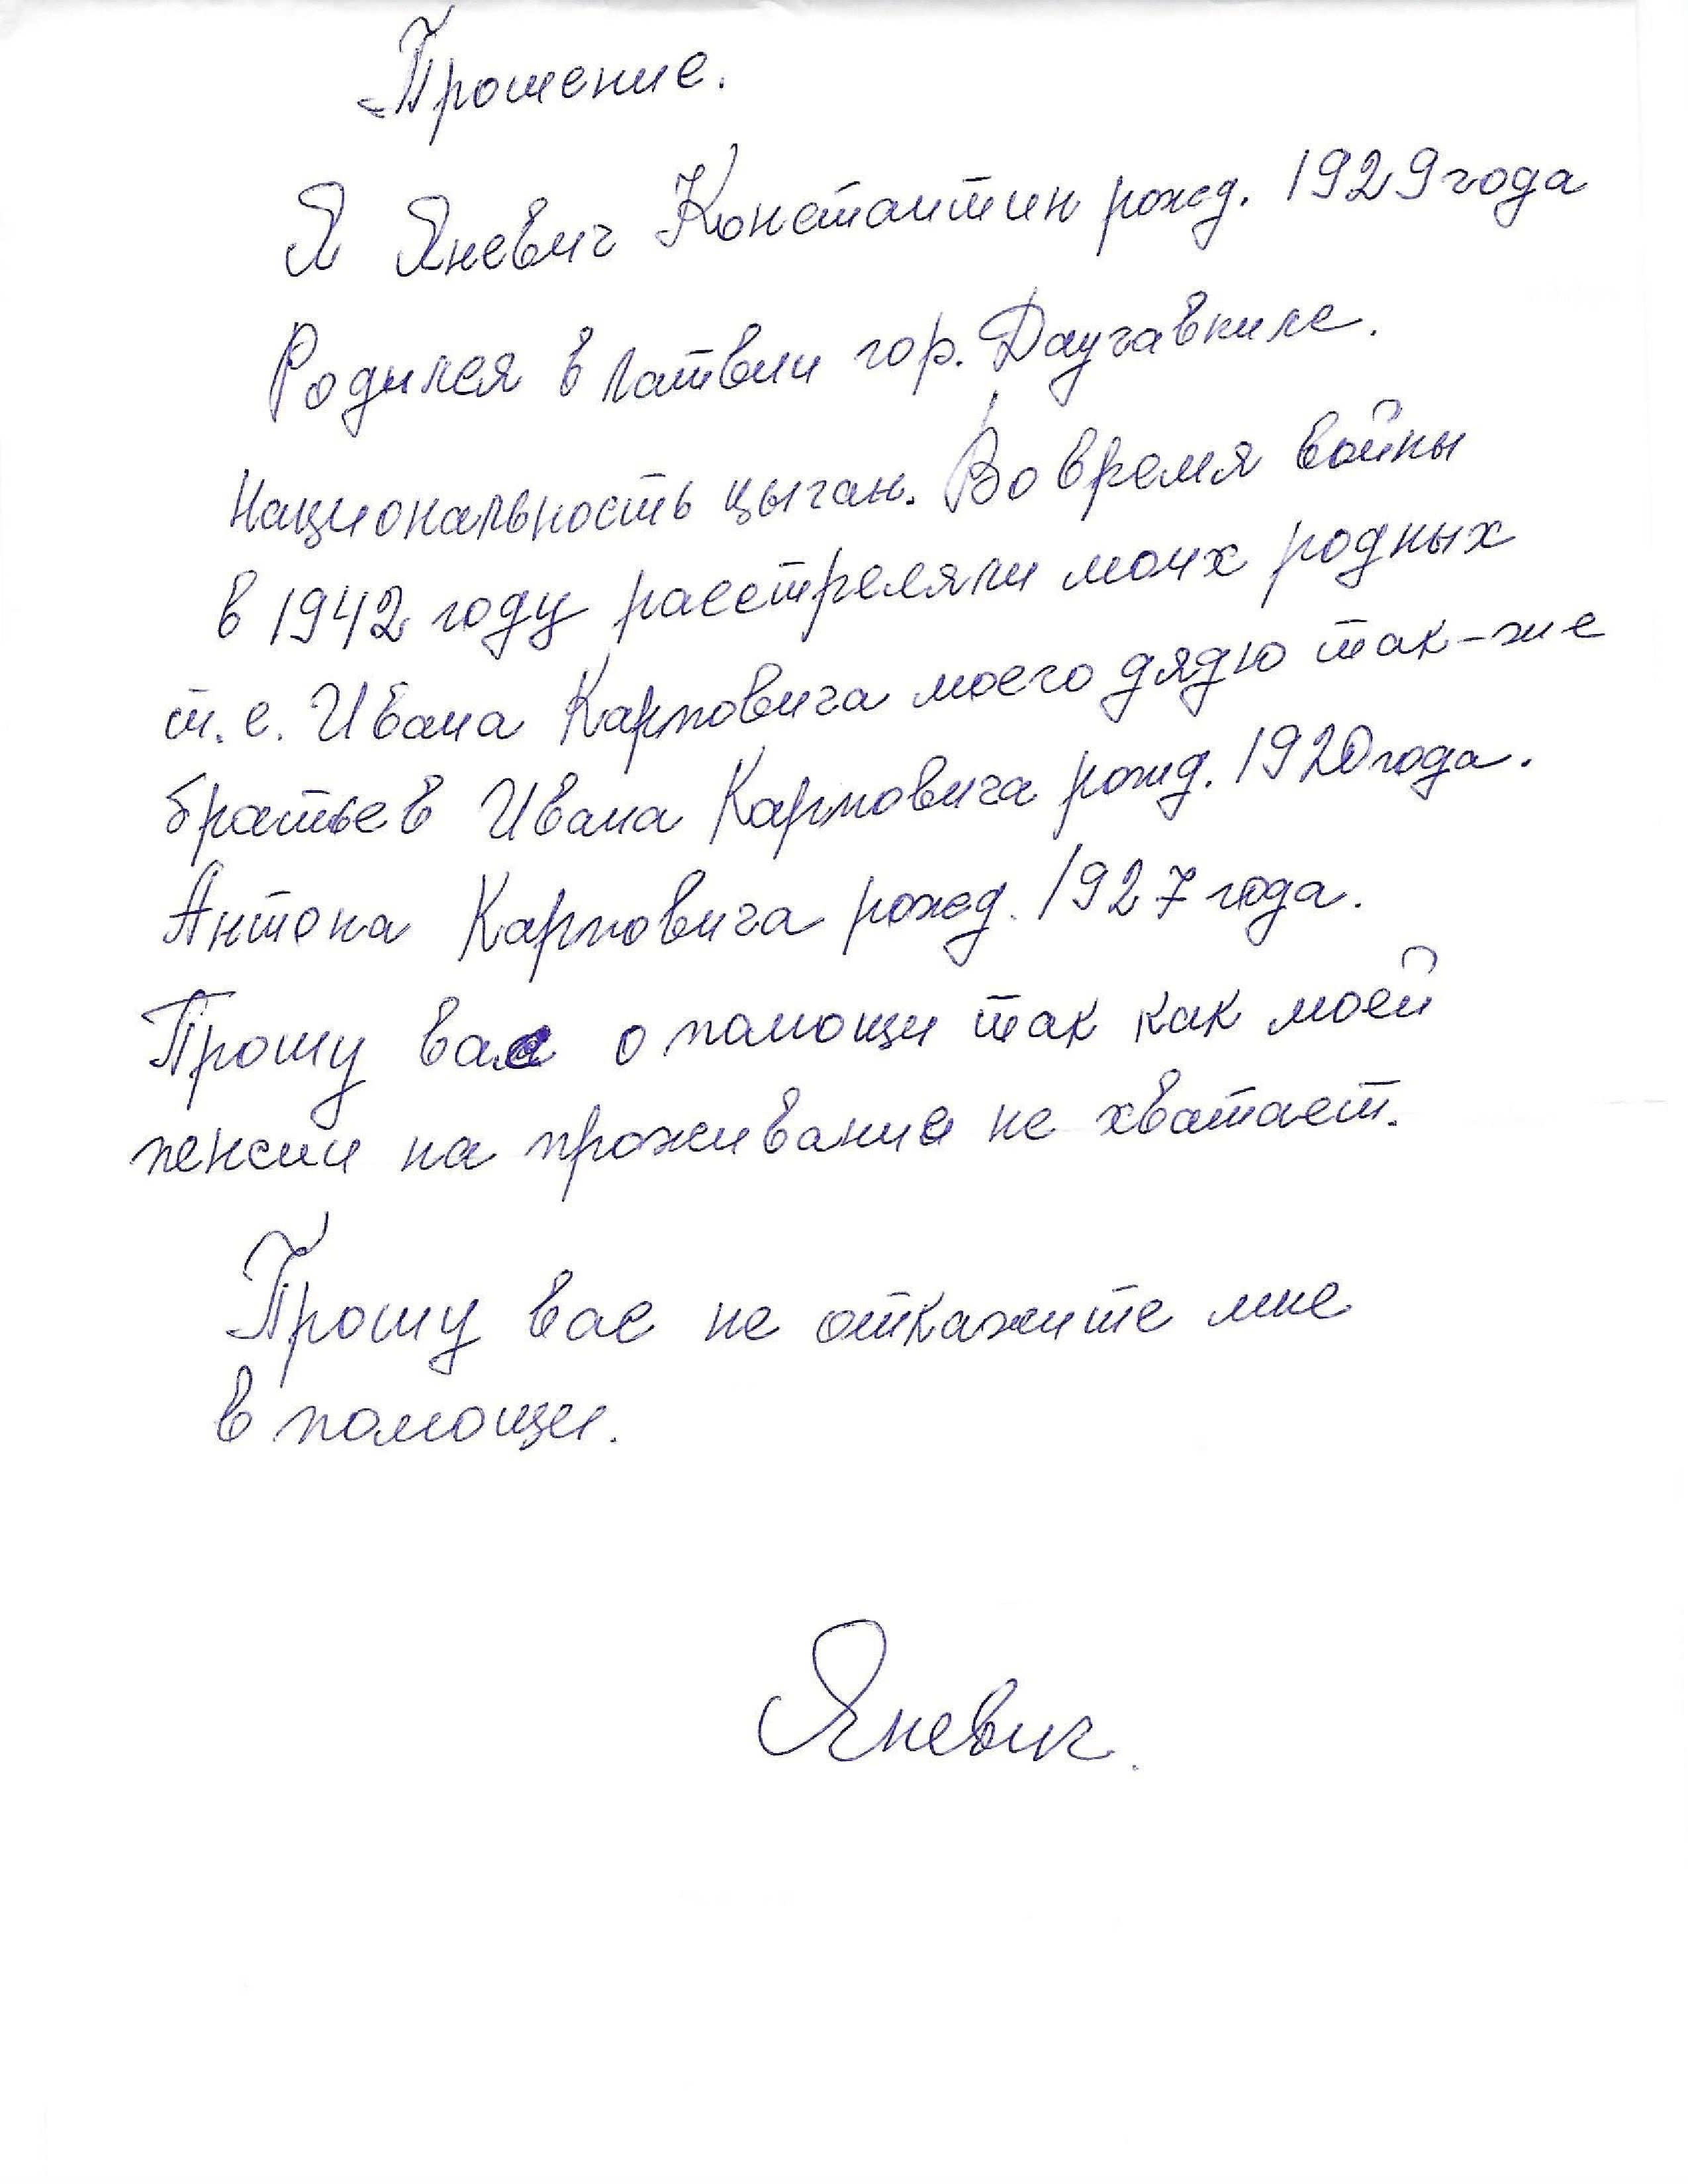 Прошение.
Я Яневич Константин рожд. 1929 года
Родился в Латвии гор. Даугавпилс.
Национальность цыган. Во время войны
в 1942 году расстреляли моих родных
т.е. Ивана Карповича моего дядю так-же
братьев Ивана Карповича рожд. 1920 года.
Антона Карповича рожд. 1927 года.
Прошу вас о помощи так как моей
пенсии на проживание не хватает.
Прошу вас не откажите мне
в помощи.
Яневич.